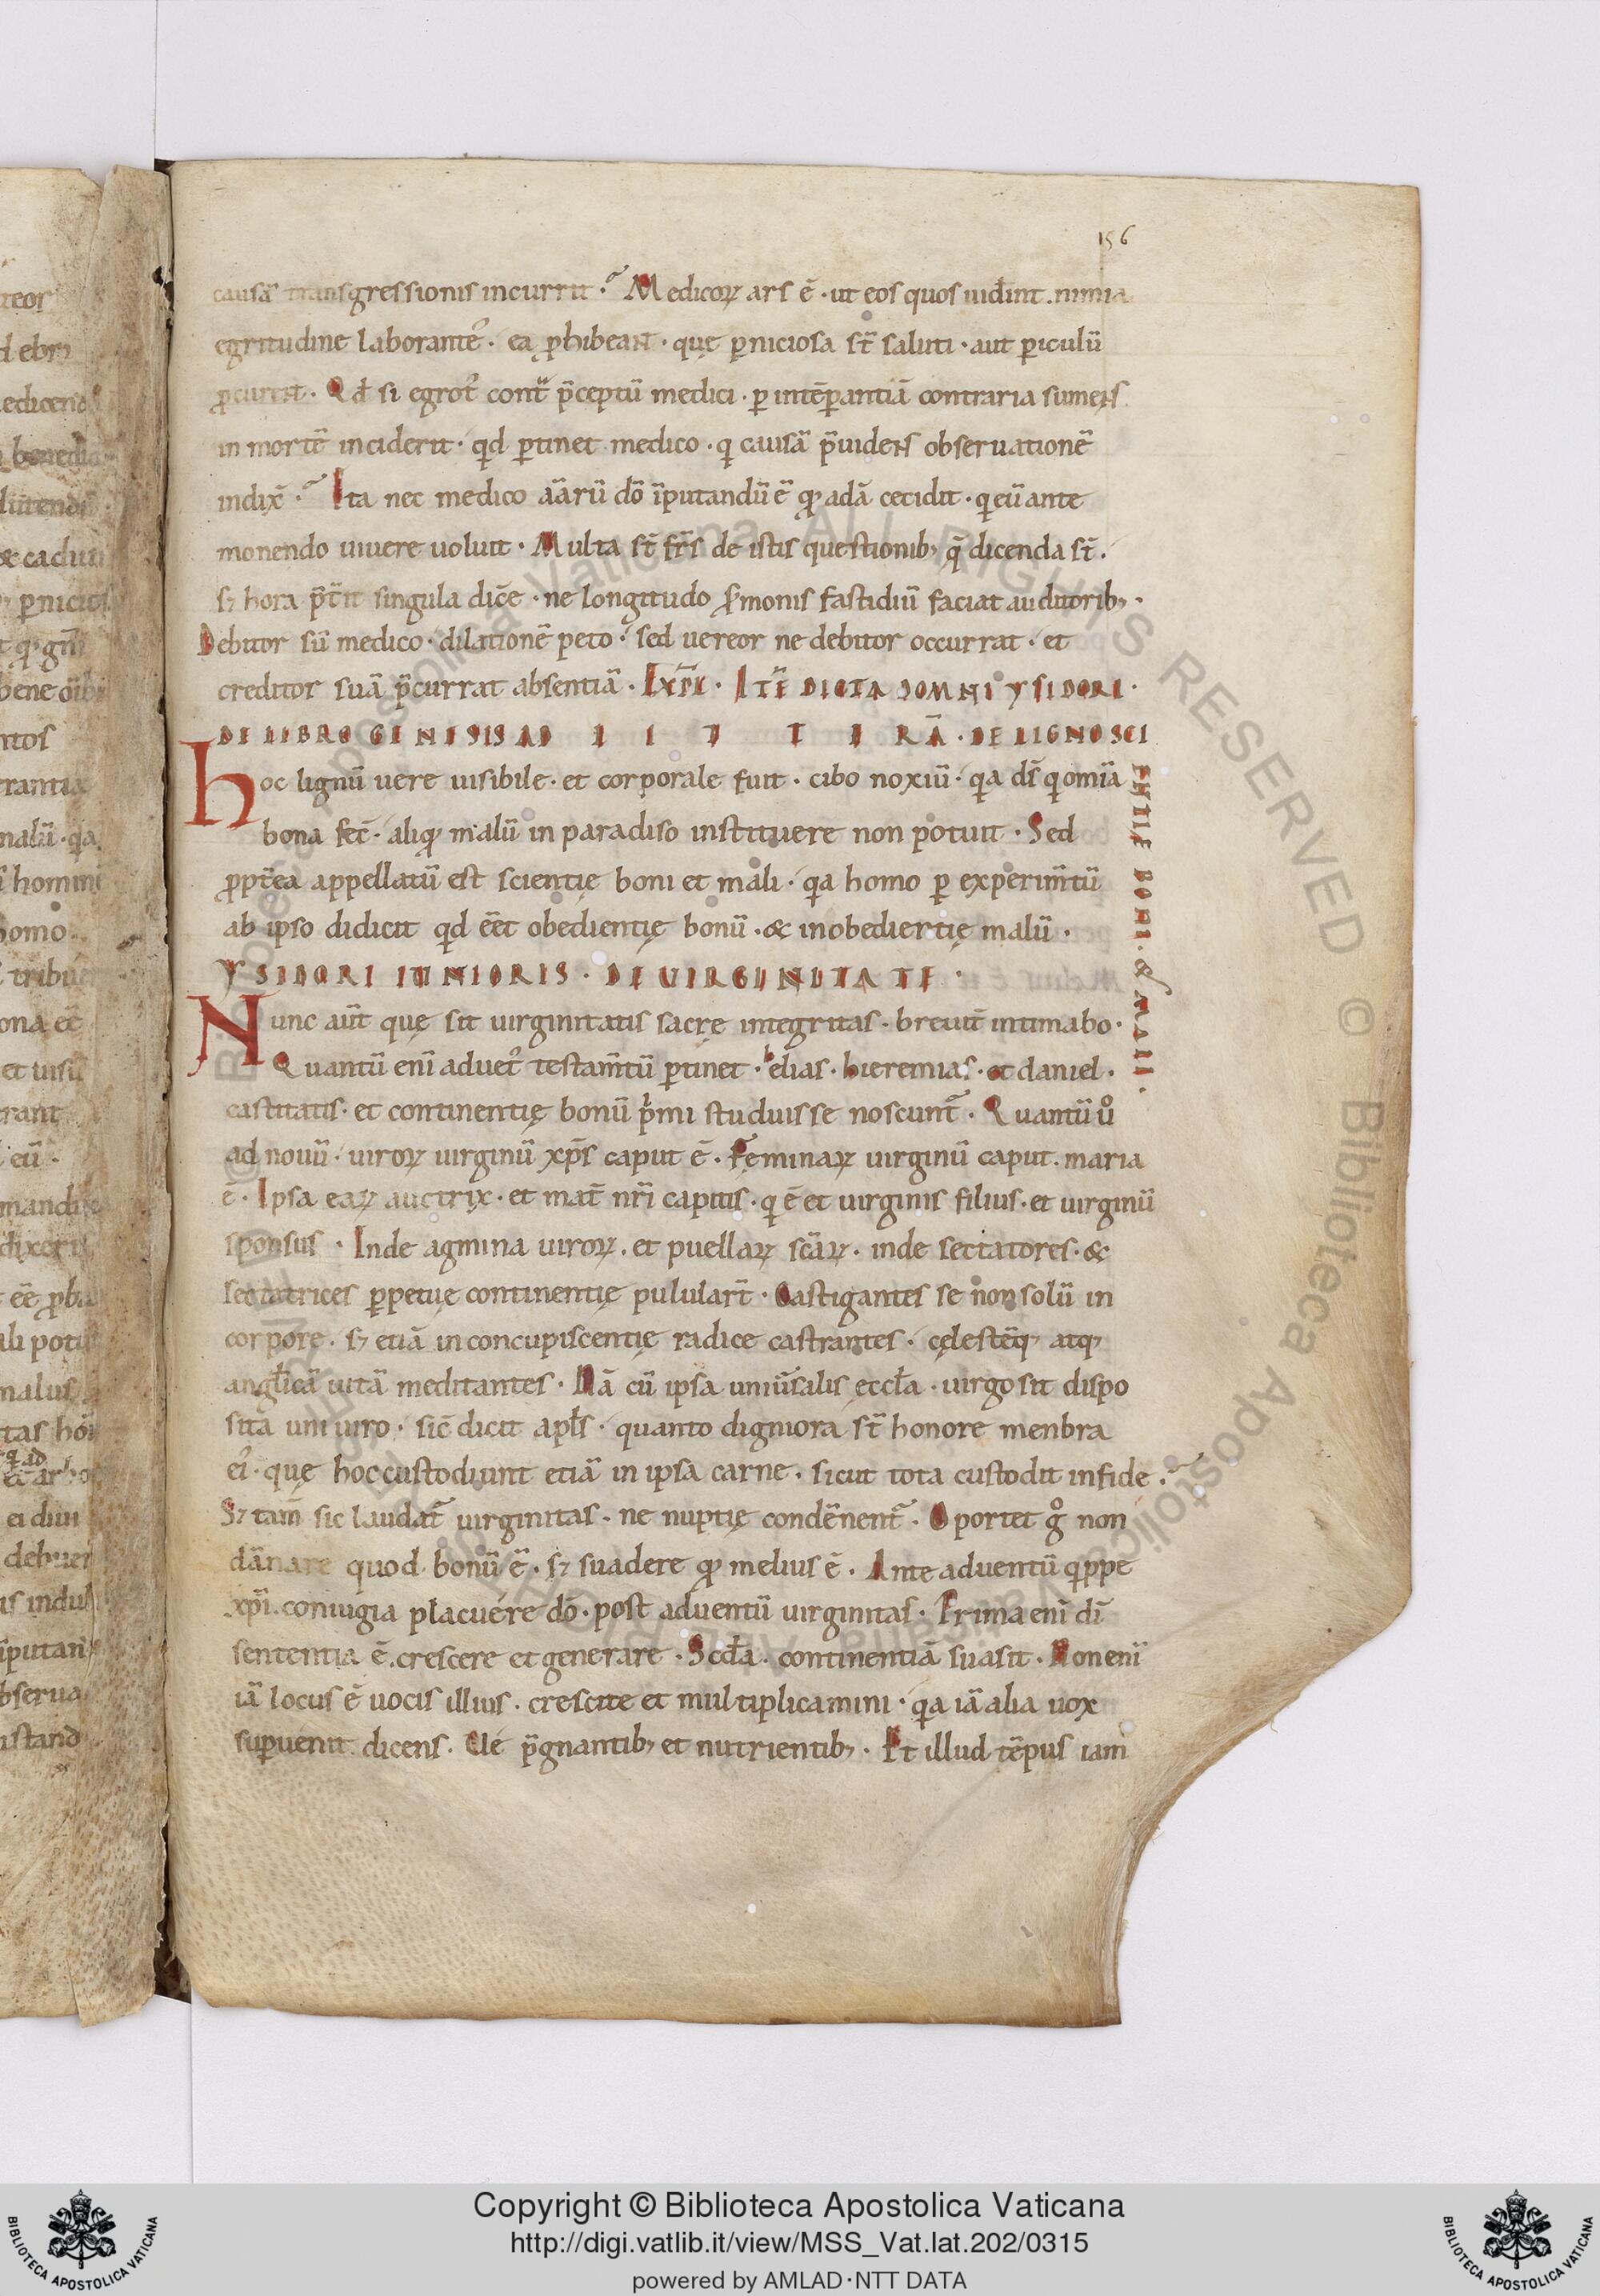 156
causā transgressionis incurrit. Medicoꝝ ars ē. ut eos quos uid̄int. nimia
egritudine laborante᷒. ea ꝓhibeant. quę ꝑniciosa st̄ saluti. aut ꝑiculū
ꝓcurent. Qd̄ si egrot᷒ cont̄ p̄ceptū medici. ꝑ intēꝑantiā contraria sumens
in mortē inciderit. qd ꝑtinet medico. q causā p̄uidens obseruationē
indix̄. Ita nec medico aīarū dō īputandū ē qꝫ adā cecidit. q eū ante
monendo uiuere uoluit. Multa st̄ fr̄s de istis questionibꝫ q̄ dicenda st̄.
sꝫ hora p̄t̄it singula dic̄e. ne longitudo s̄monis fastidiū faciat auditoribꝫ.
Debitor sū medico. dilationē peto. sed uereor ne debitor occurrat. et
creditor suā p̄currat absentiā. Exp̄l. Itē dicta domni ysidori.
de libro genesis ad litterā. de ligno sci
entie boni. & mali.
Hoc lignū uere uisibile. et corporale fuit. cibo noxiū. qa ds̄ q omīa
bona fec̄. aliqꝫ malū in paradiso instituere non potuit. Sed
ꝓpt̄ea appellatū est scientię boni et mali. qa homo ꝑ experim̄tū
ab ipso didicit qd ēet obedientię bonū. & inobediertię malū.
Ysidori iunioris. de uirginitate.
Nunc aūt quę sit uirginitatis sacrę integritas. breuit̄ intimabo.
Quantū enī aduet᷒ testam̄tū ꝑtinet. helias. hieremias. et daniel.
castitatis. et continentię bonū p̄mi studuisse noscunt̄. Quantū uͦ
ad nouū. uiroꝝ uirginū xp̄s caput ē. Feminaꝝ uirginū caput. maria
ē. Ipsa eaꝝ auctrix. et mat̄ nr̄i capitis. q ē et uirginis filius. et uirginū
sponsus. Inde agmina uiroꝝ. et puellaꝝ scāꝝ. inde sectatores. &
sectatrices ꝑpetuę continentię pulular̄t. Castigantes se non solū in
corpore. sꝫ etiā in concupiscentię radice castrantes. cęlestēqꝫ atqꝫ
angl̄icā uitā meditantes. Nā cū ipsa uniūsalis eccl̄a. uirgo sit dispo
sita uni uiro. sic̄ dicit apl̄s. quanto digniora st̄ honore menbra
ei᷒. quę hoc custodiunt etiā in ipsa carne. sicut tota custodit in fide.
Sꝫ tam̄ sic laudat̄ uirginitas. ne nuptię condēnent̄. Oportet gͦ non
dānare quod bonū ē. sꝫ suadere qꝫ melius ē. Ante aduentū qippe
xp̄i. coniugia placuere dō. post aduentū uirginitas. Prima enī dī
sententia ē. crescere et generare. Scd̄a. continentiā suasit. Non enī
iā locus ē uocis illius. crescite et multiplicamini. qa iā alia uox
suꝑuenit dicens. Ue p̄gnantibꝫ et nutrientibꝫ. Et illud tēpus iam
Copyright © Biblioteca Apostolica Vaticana
http://digi.vatlib.it/view/MSS_Vat.lat.202/0315
powered by AMLAD·NTT DATA
BIBLIOTECA APOSTOLICA VATICANA
BIBLIOTECA APOSTOLICA VATICANA